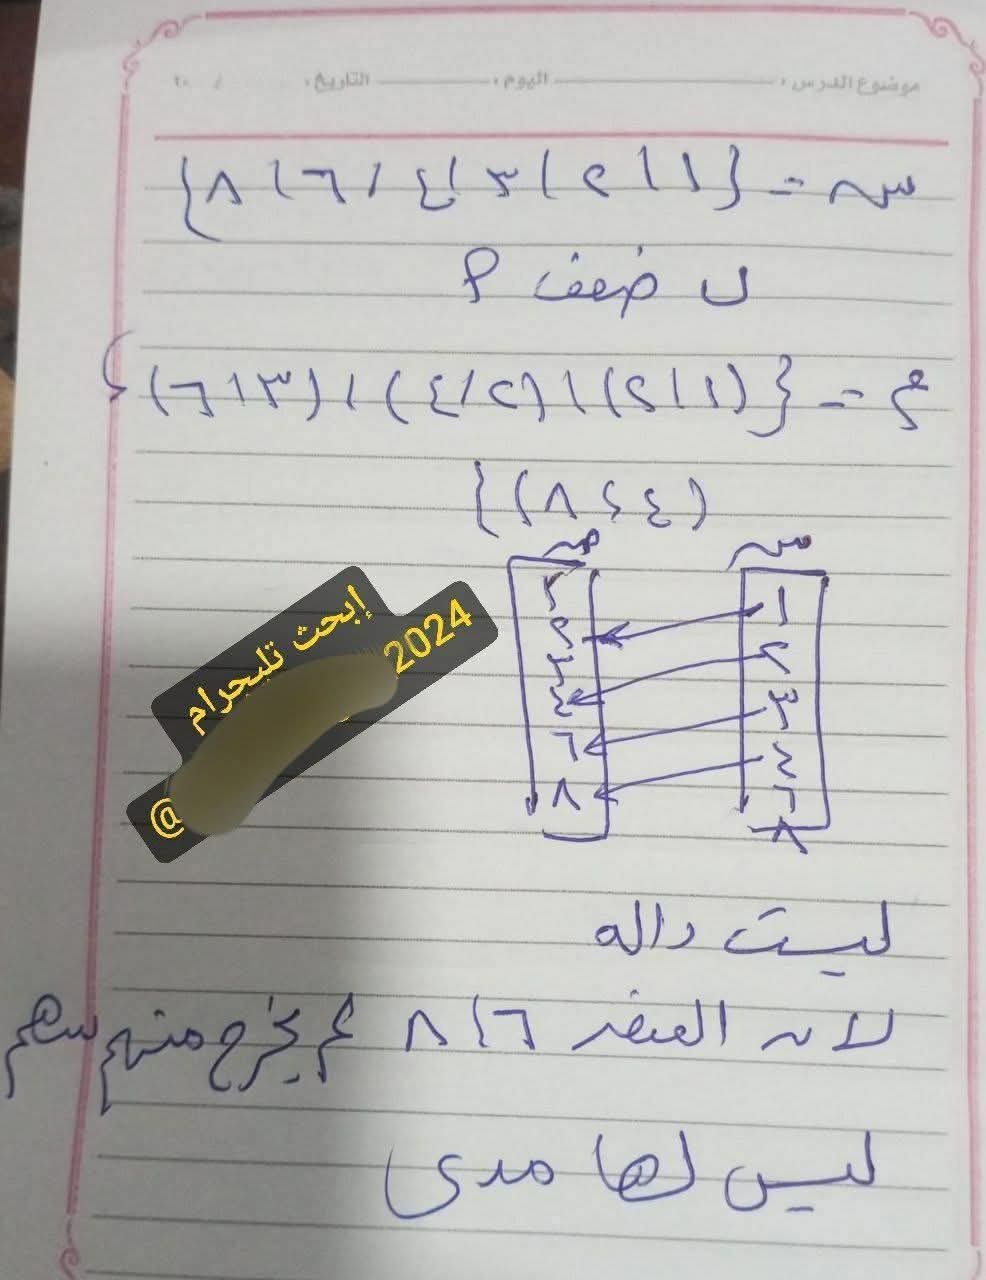 موضوع الدرس: اليوم: التاريخ: / ٢٠
س = {١، ٢، ٣، ٤، ٦، ٨}
ب ضعف م
ع = {(١، ٢)، (٢، ٤)، (٣، ٦)،
(٤، ٨)}
س
١
٢
٣
٤
٦
٨
٢
٤
٦
٨
إبحث تليجرام
@ 2024
ليست داله
لان العنصر ٦، ٨ لم يخرج منهم سهم
ليس لها مدى